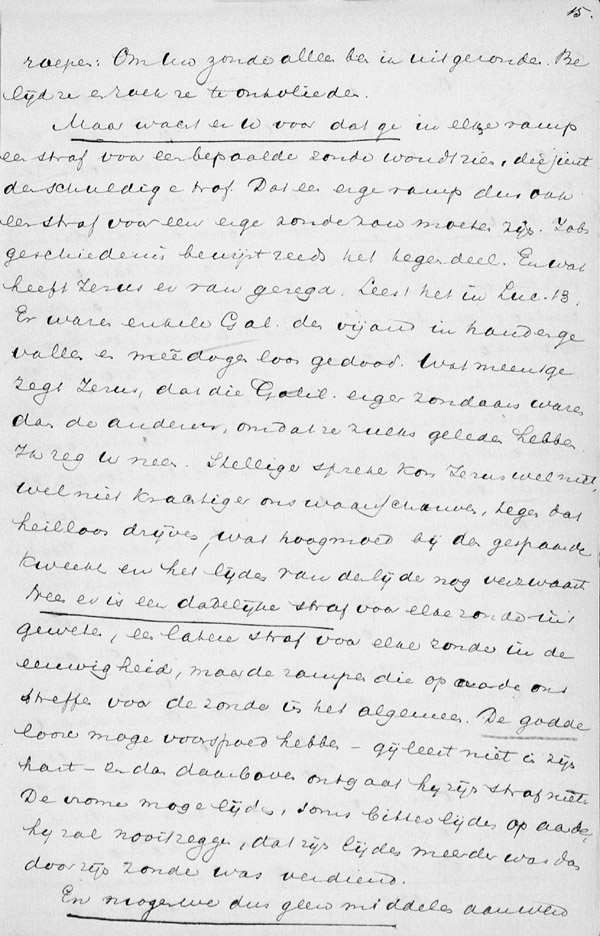 15.
roepen: Om Uw zonde alleen ben ik uitgezonden. Be
lijd ze en zoek ze te ontvlieden.
Maar wacht er U voor dat ge in elke ramp
een straf voor een bepaalde zonde woudt zien, die juist
den schuldige trof. Dat een erge ramp dus ook
een straf voor een erge zonde zou moeten zijn. Jobs
geschiedenis bewijst reeds het tegendeel. En wat
heeft Jezus er van gezegd. Leest het in Luc. 13.
Er waren enkele Gal. den vijand in handen ge
vallen en meêdogenloos gedood. Wat meent ge
zegt Jezus, dat die Galil. erger zondaars waren
dan de anderen, omdat ze zulks geleden hebben
Ik zeg U neen. Stelliger spreken kon Jezus wel niet,
wel niet krachtiger ons waarschuwen, tegen dat
heilloos drijven, wat hoogmoed bij den gespaarde
kweekt en het lijden van den lijder nog verzwaart
Neen er is een dadelijke straf voor elke zonde in 't
geweten, een latere straf voor elke zonde in de
eeuwigheid, maar de rampen die op aarde ons
treffen voor de zonde in het algemeen. De godde
looze moge voorspoed hebben – gij leest niet in zijn
hart – en dan daarboven ontgaat hij zijn straf niet.
De vrome moge lijden, soms bitter lijden op aarde,
hij zal nooit zeggen, dat zijn lijden meerder was dan
door zijn zonde was verdiend.
En mogen we dus geen middelen aanwend